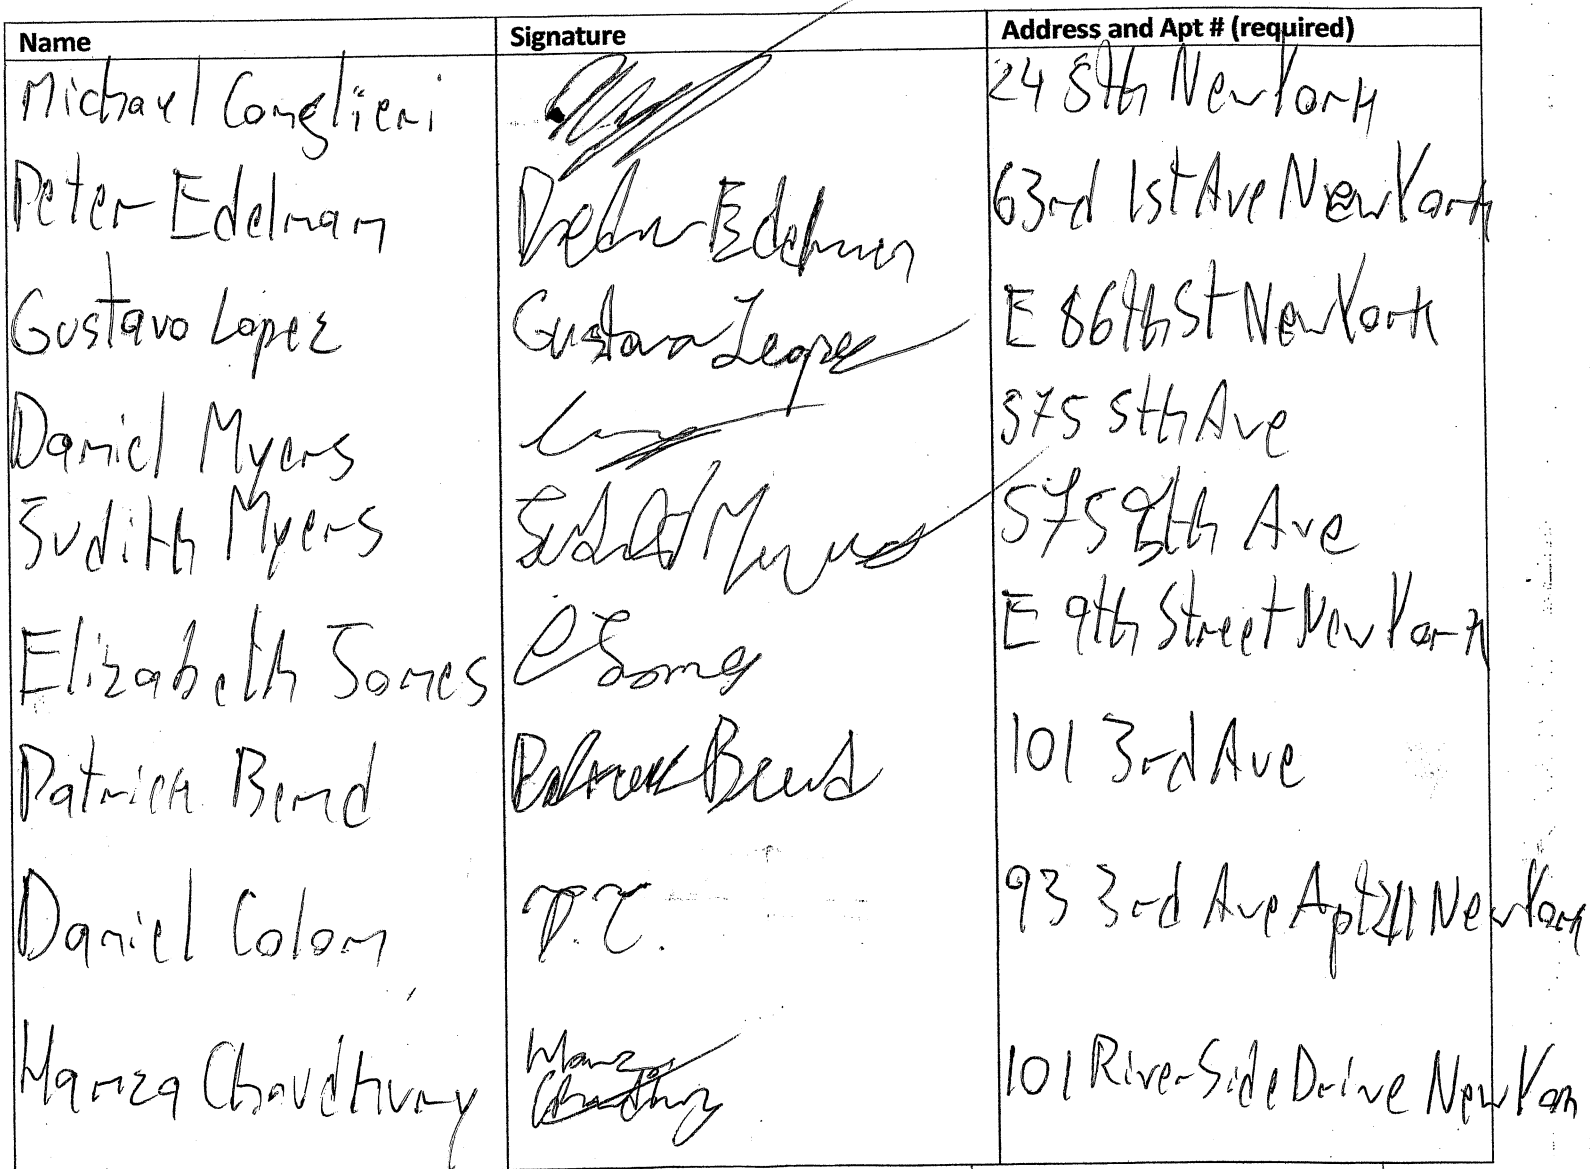 Name Signature Address and Apt # (required)
Michael Conglieri 24 8th New York
Peter Edelman Peter Edelman 63rd 1st Ave New York
Gustavo Lopez Gustavo Lopez E 86th St New York
Daniel Myers 375 5th Ave
Judith Myers Judith Myers 575 8th Ave
Elizabeth Jones E Jones E 9th Street New York
Patrick Bend Patrick Bend 101 3rd Ave
Daniel Colon D.C. 93 3rd Ave Apt 211 New York
Hamza Chaudhury Hamza 101 RiverSide Drive New York
Chaudhury